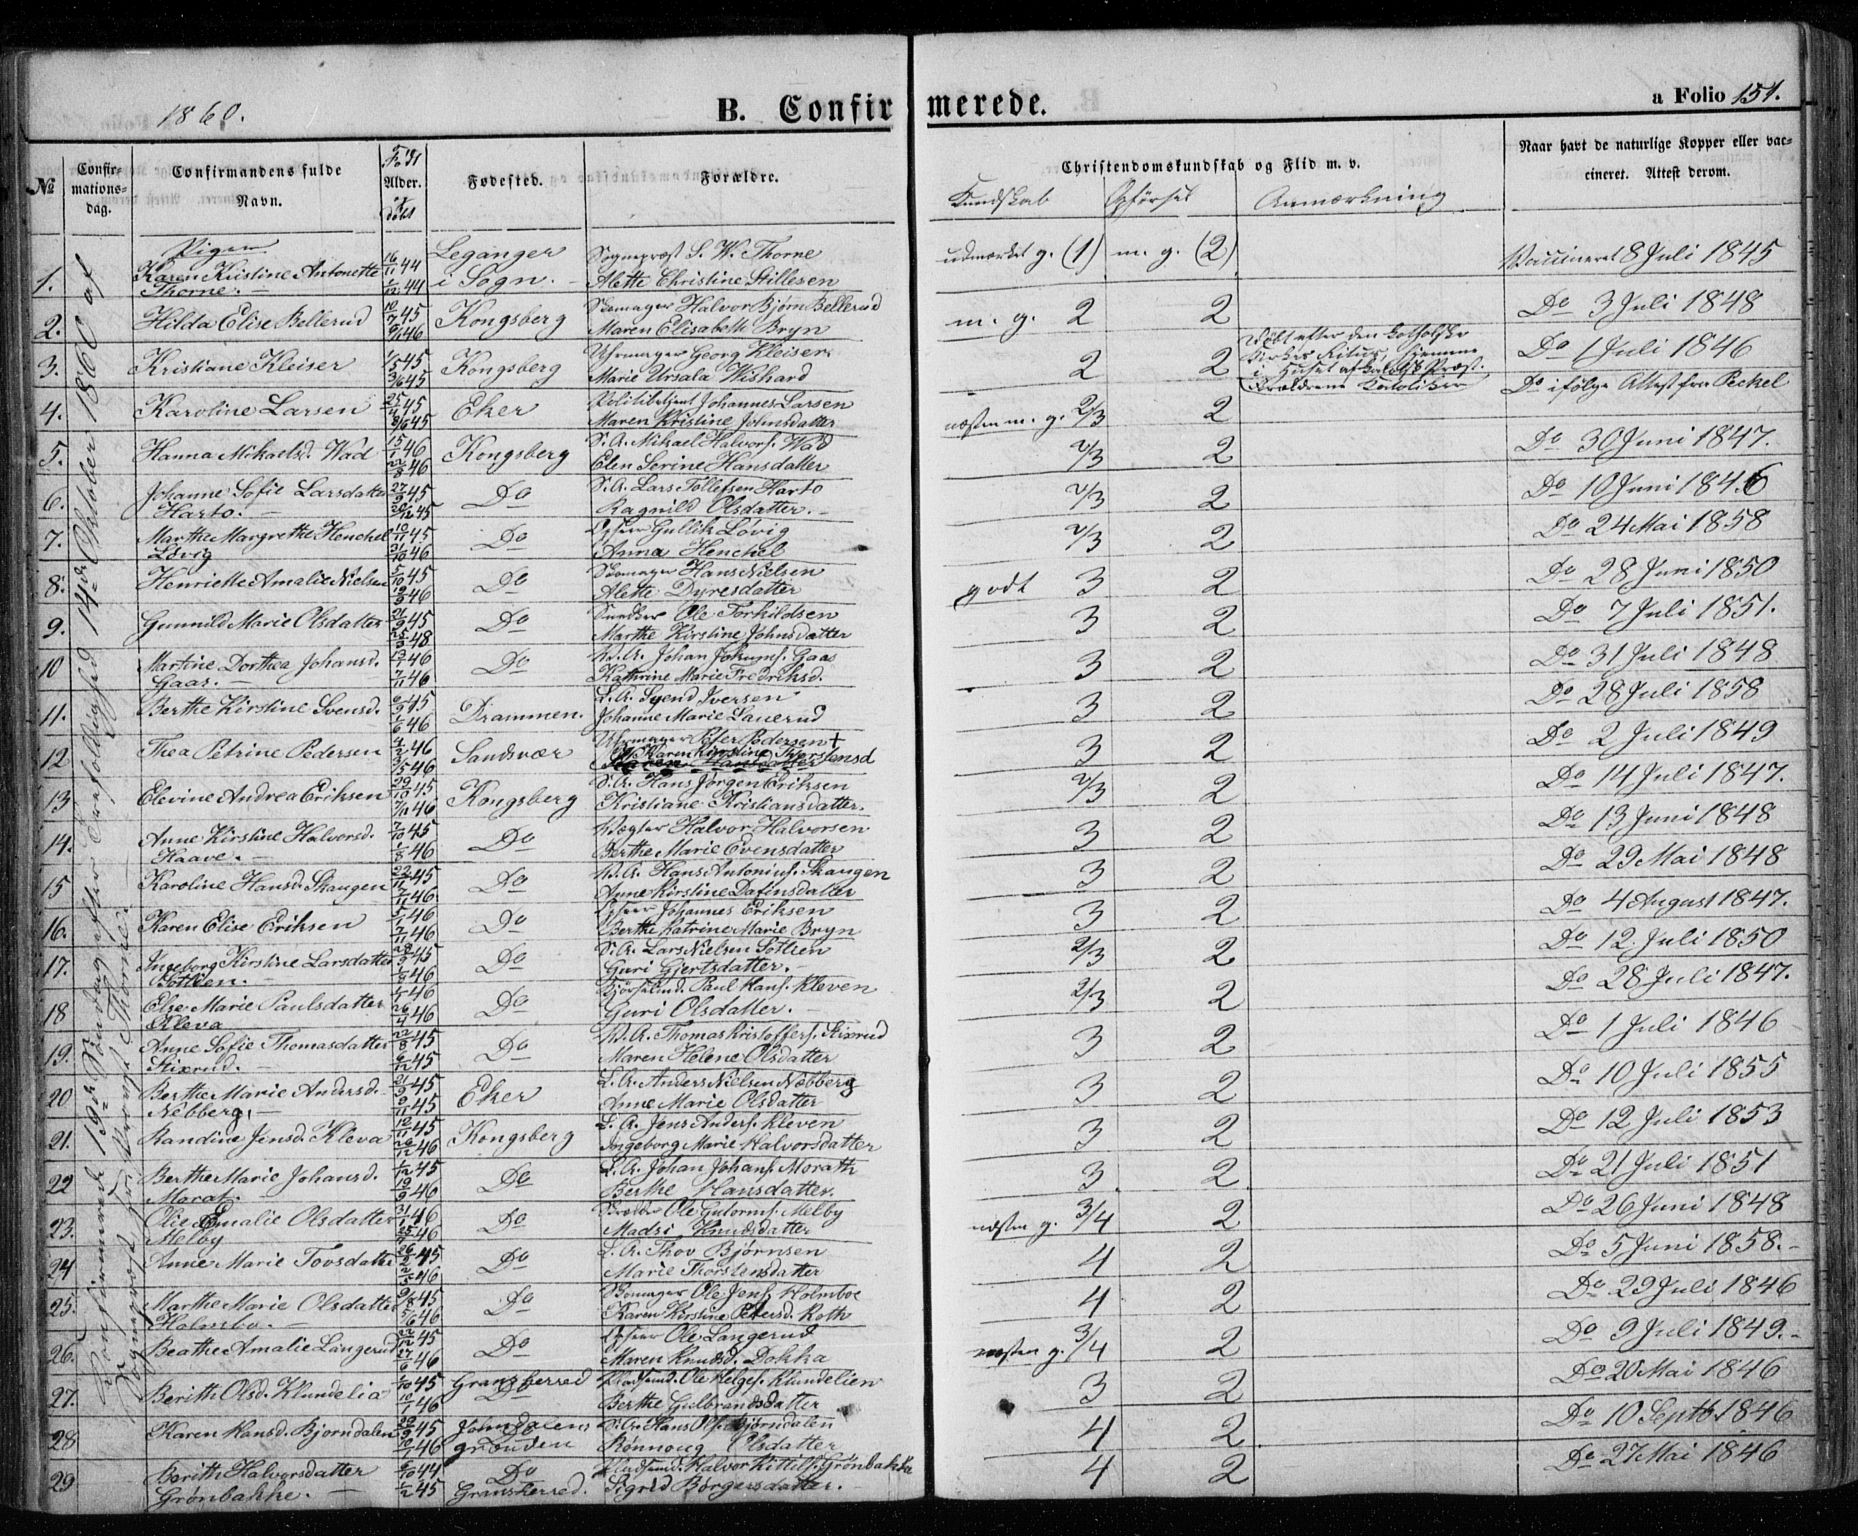 1860.
B. Confirmerede.
a Folio 151.
№
Confirmationsdag.
Confirmandens fulde Navn.
Alder.
Fødested.
Forældre.
Christendomskundskab og Flid m. v.
Kundskab Opførsel Anmærkning
Naar havt de naturlige Kopper eller vaccineret. Attest derom.
Konfirmerede 19de Søndag efter Trefoldighed 14de Oktober 1860 af
Sognepræst Thorne.
Piger
1. Karen Kristine Antonette Thorne. 16/11 44 Leganger i Sogn. Sognepræst S. W. Thorne Alette Christine Stillesen udmærket g. (1) m. g. (2) Vaccineret 8 Juli 1845
2. Hilda Elise Bellerud 45 46 Kongsberg Skomager Halvor Bjørn Bellerud Maren Elisabeth Bryn m. g. 2 2 Do 3 Juli 1848
3. Kristiane Kleiser 45 45 Kongsberg Uhrmager Georg Kleiser Marie Ursala Wishard 2 2 Døbt efter den katholske Kirkes Ritus, hjemme i Huset af katolsk Præst. Forældrene Katoliker Do 1 Juli 1846
4. Karoline Larsen 25/4 45 45 Eker Politibetjent Johannes Larsen Maren Kristine Johnsdatter næsten m. g. 2/3 2 Do ifølge Attest fra Peckel
5. Hanna Mikaelsd. Wad 15/1 46 46 Kongsberg S. A. Mikael Halvors. Wad Elen Serine Hansdatter 2/3 2 Do 30 Juni 1847.
6. Johanne Sofie Larsdatter Harto. 27/9 45 45 Do S. A. Lars Tollefsen Harto Ragnild Olsdatter. 2/3 2 Do 10 Juni 1846
7. Marthe Margrethe Henchel Løvig 10/11 45 46 Do Opseer Gullik Løvig Anna Henchel 2/3 2 Do 24 Mai 1858
8. Henriette Amalie Nielsen 5/10 45 46 Do Skomager Hans Nielsen Alette Dyresdatter godt 3 2 Do 28 Juni 1850
9. Gunnild Marie Olsdatter 21/9 45 48 Do Snedker Ole Torkildsen Marthe Kirstine Johnsdatter 3 2 Do 7 Juli 1851.
10 Martine Dorthea Johansd. Gaas. 13/1 46 46 Do Johan Jokums. Gaas Kathrine Marie Fredriksd. 3 2 Do 31 Juli 1848
11. Berthe Kirstine Svensd. 45 46 Drammen. L. A. Svend Iversen Johanne Marie Lauerud 3 2 Do 28 Juli 1858
12 Thea Petrine Pedersen 4/2 46 46 Sandsvær Uhrmager Peter Pedersen + Karen Kirstine Thorstensd 3 2 Do 2 Juli 1849
13 Elevine Andrea Eriksen 29/10 45 46 Kongsberg S. A. Hans Jørgen Eriksen Kristiane Kristiansdatter. 2/3 2 Do 14 Juli 1847.
14. Anne Kirstine Halvorsd. Haave. 7/10 45 46 Do Vægter Halvor Halvorsen Berthe Marie Evensdatter 3 2 Do 13 Juni 1848
15 Karoline Hansd. Skaugen 22/11 45 46. Do Hans Antonius. Skaugen Anne Kirstine Dafinsdatter 3 2 Do 29 Mai 1848
16. Karen Elise Eriksen 46 46 Do Opseer Johannes Eriksen Berthe Katrine Marie Bryn 3 2 Do 4 August 1847.
17. Ingeborg Kirstine Larsdatter Sotlien. 45 46 Do S. A. Lars Nielsen Sotlien Guri Gjertsdatter. 2/3 2 Do 12 Juli 1850
18 Else Marie Paulsdatter Kleva 46 26/4 46 Do Paul Hans. Kleven Guri Olsdatter. 2/3 2 Do 28 Juli 1847.
19. Anne Sofie Thomasdatter Stixrud. 22/8 45 45 Do Thomas Kristoffers. Stixrud Maren Helene Olsdatter 3 2 Do 1 Juli 1846
20 Berthe Marie Andersd. Nebberg. 21/9 45 45 Eker L. A. Anders Nielsen Nebberg Anne Marie Olsdatter 3 2 Do 10 Juli 1855
21. Randine Jensd. Kleva 12/11 45 46 Kongsberg L. A. Jens Anders. Kleven Ingeborg Marie Halvorsdatter 3 2 Do 12 Juli 1853
22 Berthe Marie Johansd. Morat. 45 46 Do L. A. Johan Johans. Morath Berthe Hansdatter. 3 2 Do 21 Juli 1851
23. Olie Emalie Olsdatter Melby 31/1 46 46 Do Ole Gutorms. Melby Madsi Knudsdatter næsten g. 3/4 2 Do 26 Juni 1848
24 Anne Marie Tovsdatter 26/2 45 46 Do L. A. Thov Bjørnsen Marie Thorstensdatter 4 2 Do 5 Juni 1858.
25. Marthe Marie Olsdatter Holmbo. 45 46 Do Skomager Ole Jens. Holmboe Karen Kirstine Petersd. Roth 4 2 Do 29 Juli 1846
26. Beathe Amalie Langerud 22/12 45 46 Do Opseer Ole Langerud Maren Knudsd. Dokka næsten g. 3/4 2 Do 9 Juli 1849.
27. Berith Olsd. Klundelia 45 46 Gransherred Do Pladsmd. Ole Helges. Klundelien Berthe Gulbrandsdatter 3 2 Do 20 Mai 1846
28 Karen Hansd. Bjørndalen 45 46 Johnsdalen grænden S. A. Hans Ols. Bjørndalen Rønnoug Olsdatter 4 2 Do 10 Septb. 1846
29 Berith Halvorsdatter Grønbakke. 44 45 Do Gransherred. Pladsmd. Halvor Kittils. Grønbakke Sigrid Børgersdatter. 4 2 Do 27 Mai 1846